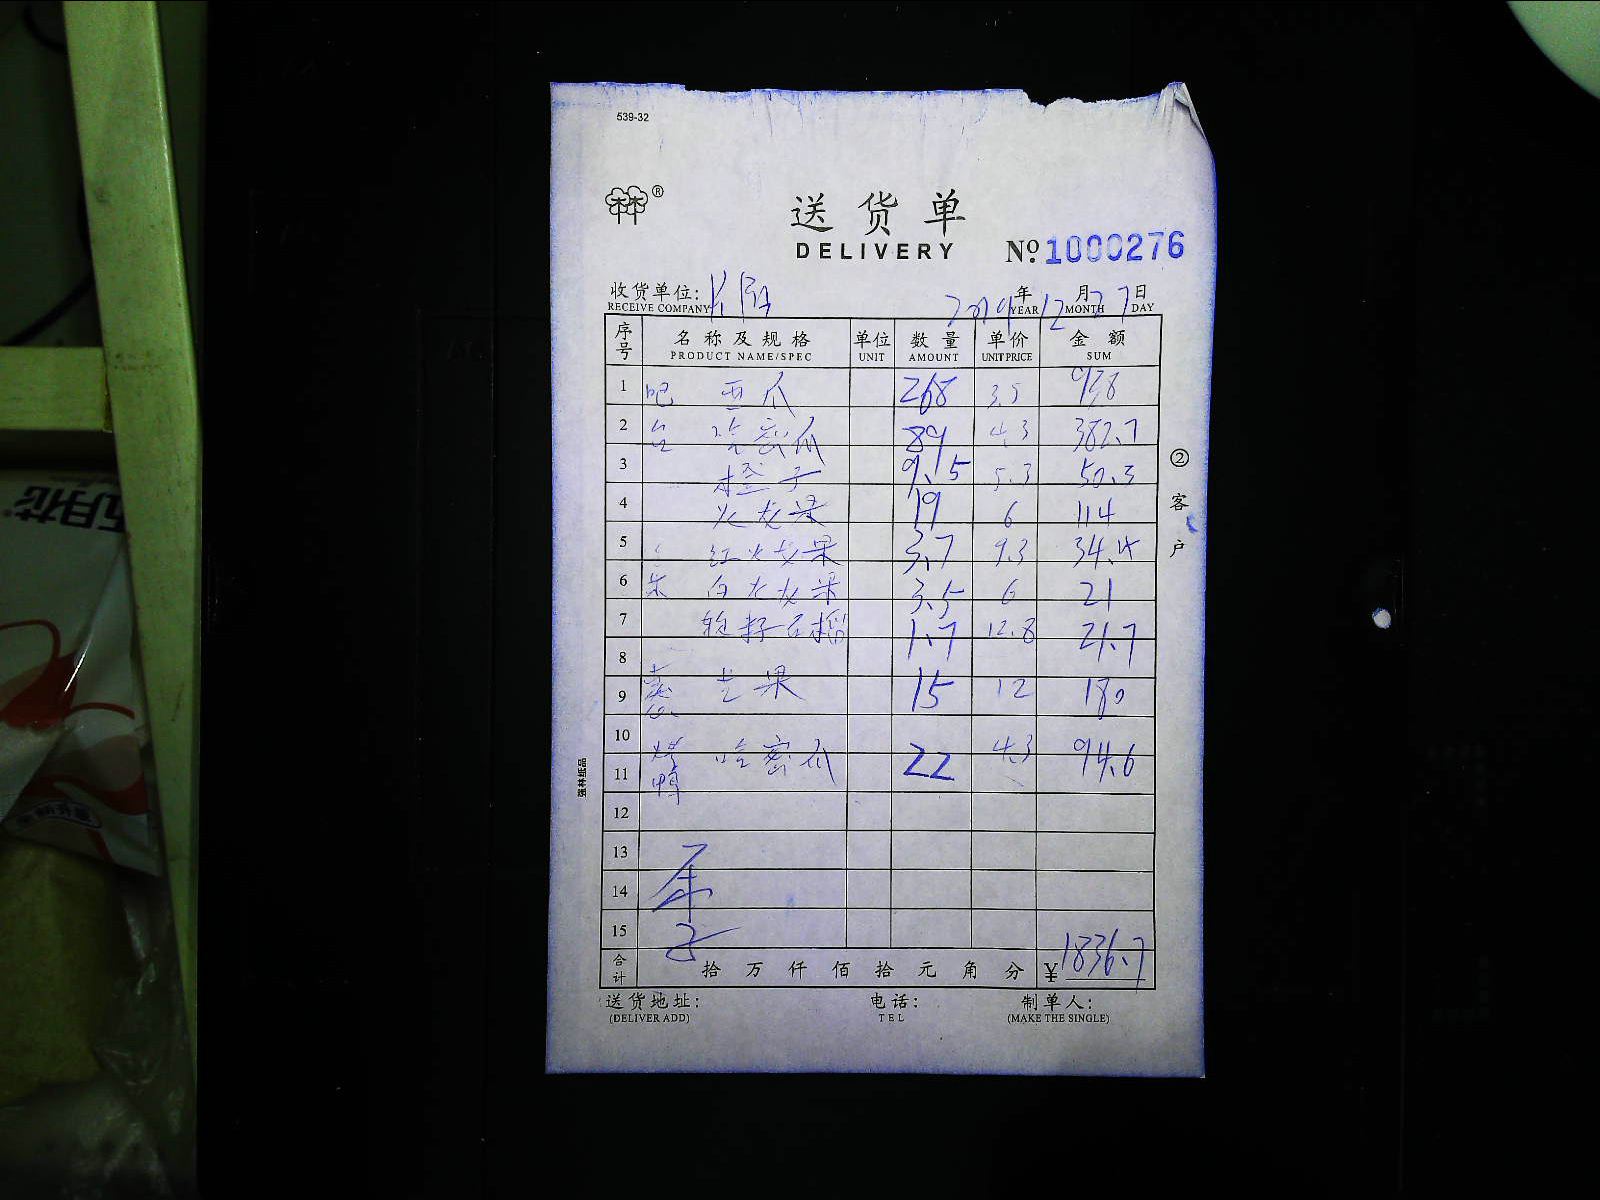 539-32
®
送货单
DELIVERY
№ 1000276
收货单位:
RECEIVE COMPANY
2019年12月27日
YEAR MONTH DAY
序号 名称及规格 单位 数量 单价 金额
PRODUCT NAME/SPEC UNIT AMOUNT UNIT PRICE SUM
1 吧 西瓜 268 3.5 938
2 台 哈密瓜 89 4.3 382.7
3 橙子 9.5 5.3 50.3
4 火龙果 19 6 114
5 红火龙果 3.7 9.3 34.4
6 白火龙果 3.5 6 21
7 软籽石榴 1.7 12.8 21.7
8
9 芒果 15 12 180
10 烤鸭 哈密瓜 22 4.3 94.6
11
12
13
14
15
合计 拾万仟佰拾元角分 ¥1836.7
送货地址: 电话: 制单人:
(DELIVER ADD) TEL (MAKE THE SINGLE)
②客户
强林纸品
五月花